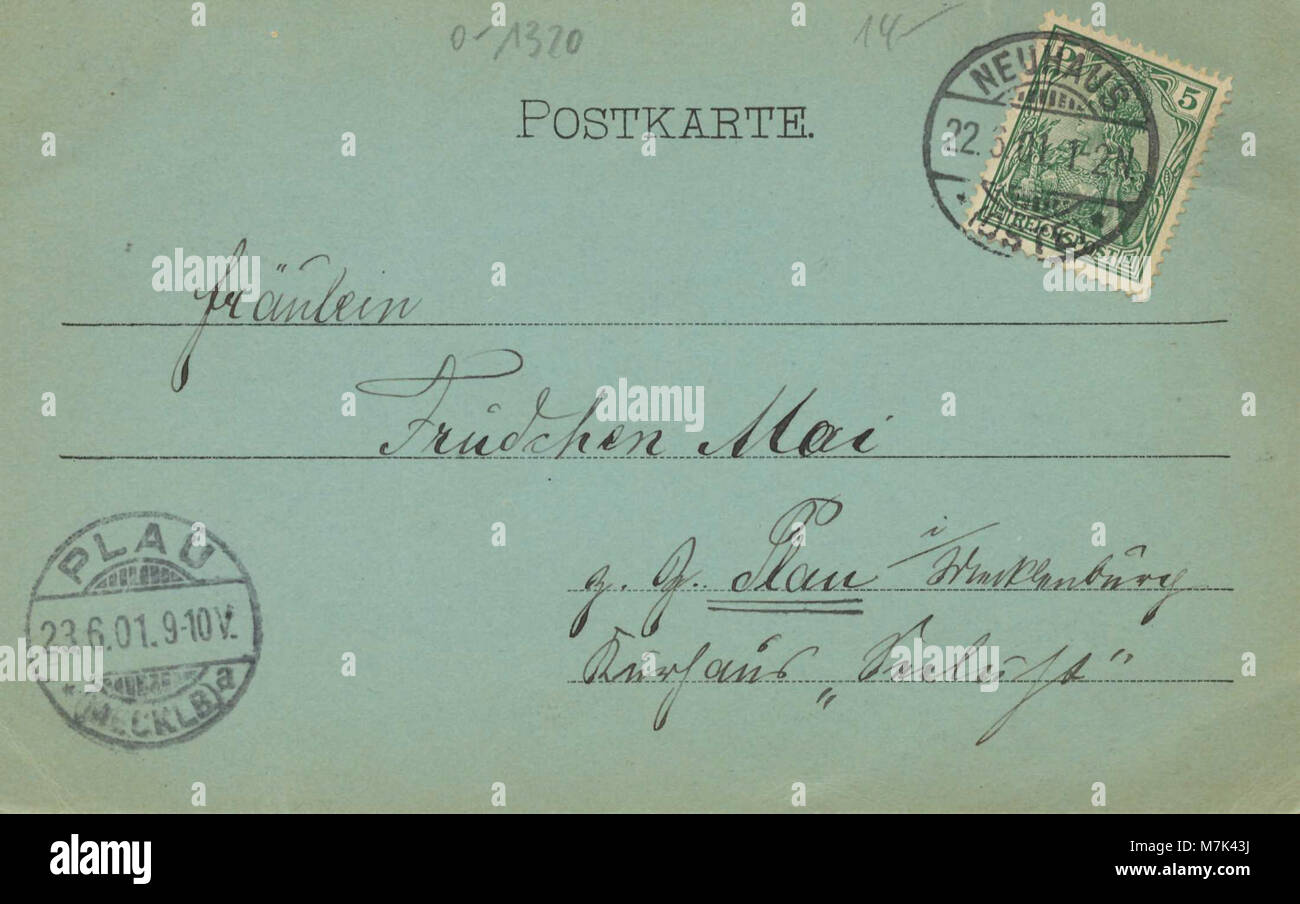 0-1320
14-
POSTKARTE.
NEUHAUS
22.6.01.1-2N.
* (OSTE) *
5
REICHSPOST
Fräulein
Trudchen Mai
z. Z. Plau i/Mecklenburg
Kurhaus „Seeluft"
PLAU
23.6.01.9-10V.
* (MECKLB) a
alamy
a
alamy
Image ID: M7K43J
www.alamy.com